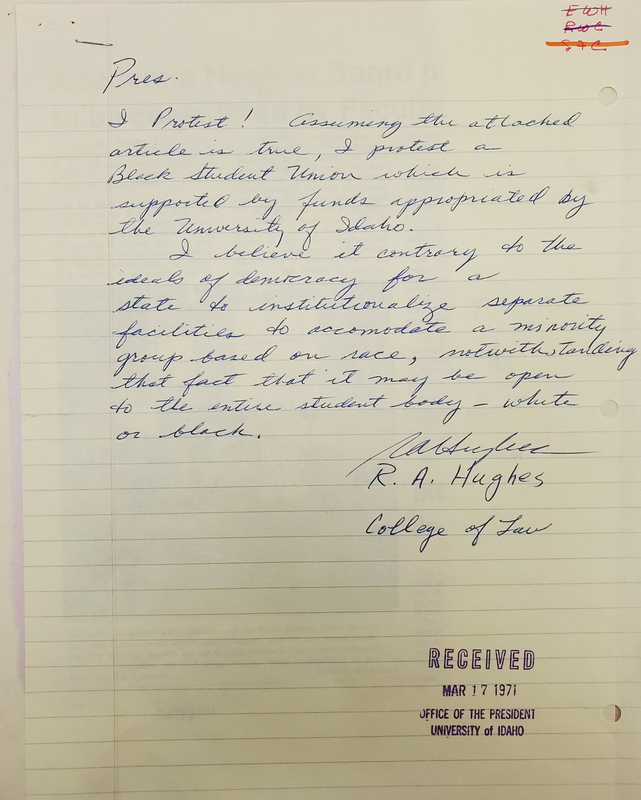 EWH
RWC
SFC
Pres.
I Protest! Assuming the attached
article is true, I protest a
Black Student Union which is
supported by funds appropriated by
the University of Idaho.
I believe it contrary to the
ideals of democracy for a
state to institutionalize separate
facilities to accomodate a minority
group based on race, notwithstanding
that fact that it may be open
to the entire student body – white
or black.
RAHughes
R. A. Hughes
College of Law
RECEIVED
MAR 17 1971
OFFICE OF THE PRESIDENT
UNIVERSITY of IDAHO